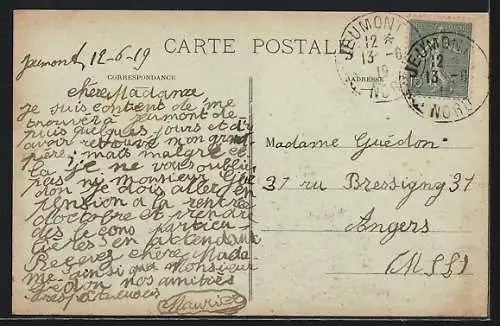 Jeumont, 12-6-19
CARTE POSTALE
CORRESPONDANCE
ADRESSE
JEUMONT
12 *
13 - 6
19
NORD
JEUMONT
12
13 - 6
NORD
chère Madame
Je suis content de me
trouver à Jeumont de
puis quelques jours et d'y
avoir retrouvé mon grand
père; mais malgré ce
la je ne vous oublie
pas ni monsieur
don je dois aller en
pension a la rentrée
d'octobre et prendre
des leçons particu
lières en attendant
Recevez chère Mada
me ainsi que Monsieur
Guédon nos amitiés
respectueuses
Maurice
Madame Guédon
37 rue Bressigny 37
Angers
(M&L)